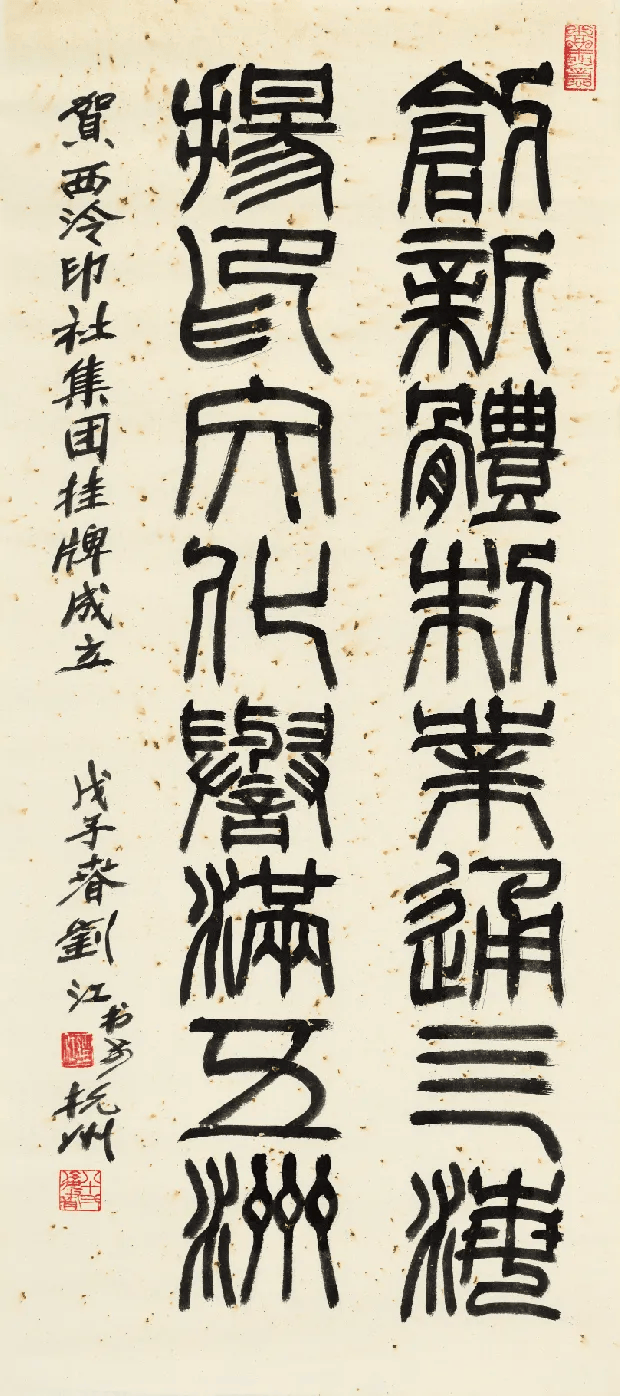 創新體制業通亖海
揚印文化譽滿五洲
賀西泠印社集团挂牌成立 戊子春劉江书於杭州